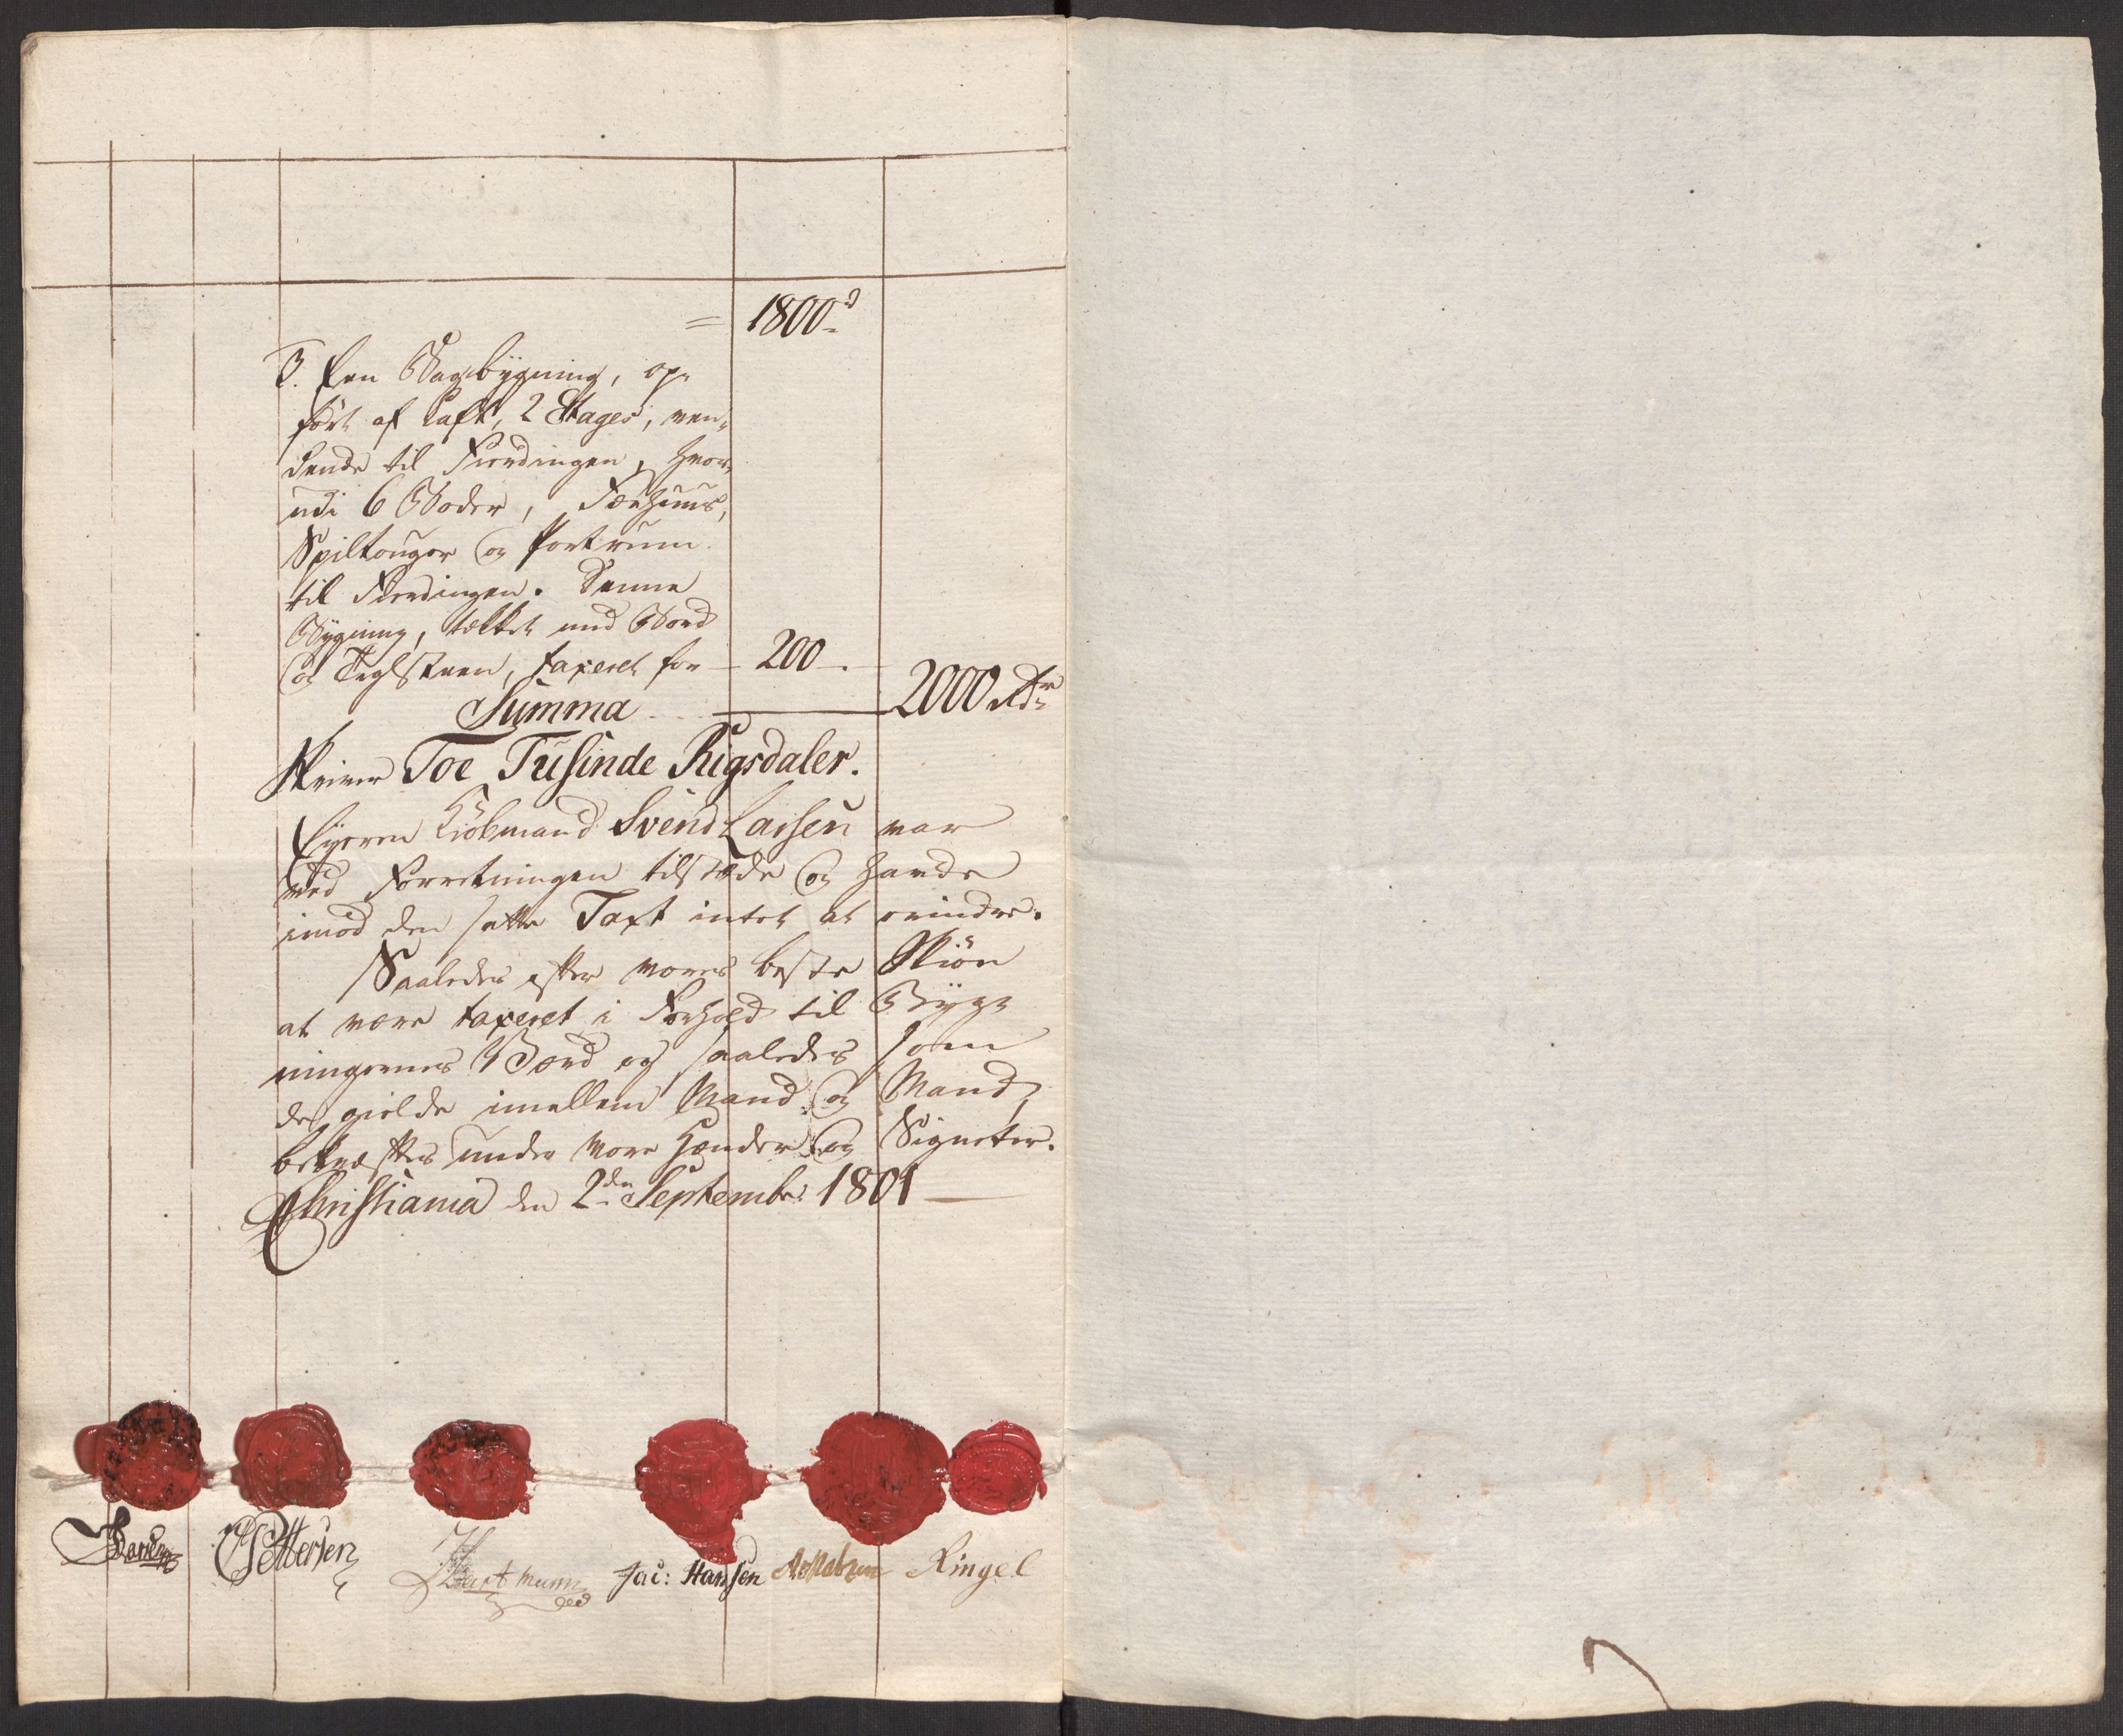 = 1800 d
3. Een Bagbÿgning, op-
ført af Laft, 2 Etages, ven-
dende til Fierdingen, hvor-
udi 6 Boder, Fæehuus,
Spiltouger og Portrum
til Fierdingen. Denne
Bÿgning, tekket med Bord
og Teglsteen, taxeret for 200 -.
Summa 2000 Rdr
Skriver Toe Tusinde Rigsdaler.
Eyeren Kiöbmand Svend Larsen var
ved Forretningen tilstæde og havde
imod den satte Taxt intet at erindre.
Saaledes efter vores beste Skiön
at være taxeret i Forhold til Bÿg-
ningernes Værd og saaledes som
de gielde imellem Mand og Mand,
bekræftes under vore Hænder og Signeter.
Christiania den 2den Septembr: 1801
Pettersen Hartmann Jac: Hansen Ringel